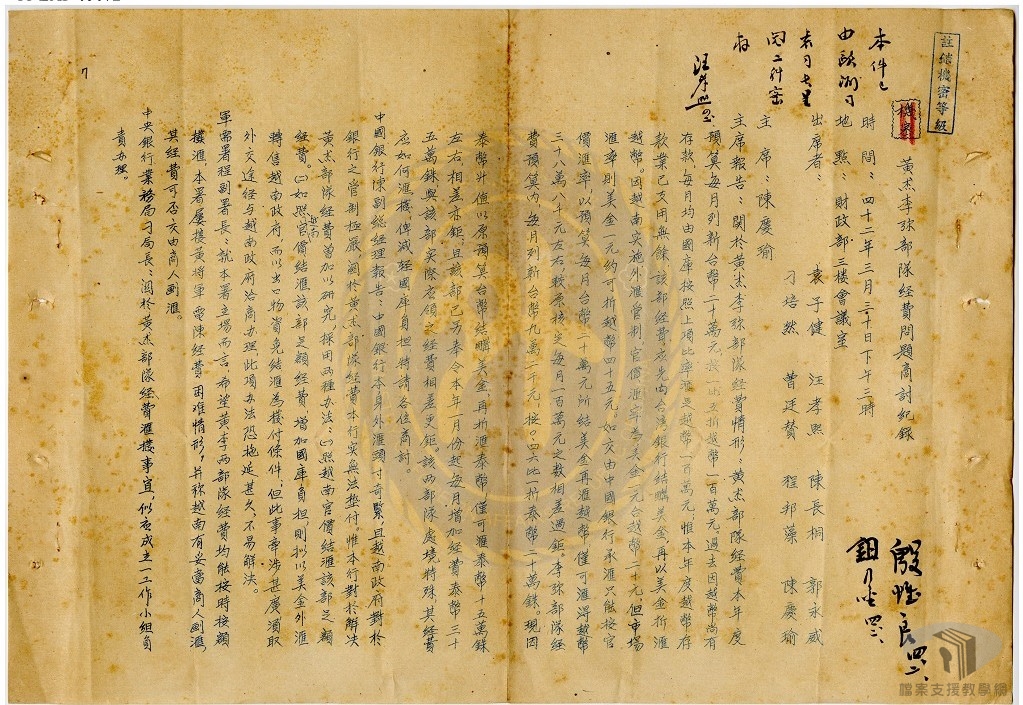 註銷機密等級
機密
本件已
由歐洲司
存
汪孝熙
黃杰李弥部隊經費問題商討紀錄
時間：四十二年三月三十日下午三時
地點：財政部三樓會議室
出席者：袁子健 汪孝熙 陳長桐 郭永威
刁培然 曹廷贊 程邦藻 陳慶瑜
主席：陳慶瑜
主席報告：關於黃杰李弥部隊經費情形：黃杰部隊經費本年度
預算每月列新台幣二十萬元，按一比五折越幣一百萬元過去因越幣尚有
存款，每月均由國庫按照上項比率滙足越幣一百萬元，惟本年度越幣存
款業已支用無餘，該部經費，應先向台灣銀行結購美金，再以美金折滙
越幣。因越南實施外滙管制，官價滙率為美金一元合越幣二十元，但市場
滙率則美金一元約可折越幣四十五元。如交由中國銀行承滙只能按官
價滙率，以預算每月台幣二十萬元所結美金再滙越幣僅可滙得越幣
三十八萬八千元左右較原核定每月一百萬元之數相差過鉅。李弥部隊經
費預算內，每月列新台幣九萬二千元，按〇．四六比一折泰幣二十萬銖。現因
泰幣升值以原預算台幣結購美金，再折滙泰幣，僅可滙泰幣十五萬銖
左右相差亦鉅，且該部已另奉令本年一月份起每月增加經費泰幣三十
五萬銖與該部實際應領之經費相差更鉅。該兩部隊處境特殊其經費
應如何滙撥，俾減輕國庫負担特請各位商討。
中國銀行陳副總經理報告：中國銀行本身外滙頭寸奇緊，且越南政府對於
銀行之管制極嚴，關於黃杰部隊經費本行實無法墊付，惟本行對於解決
黃杰部隊經費曾加以研究，採用兩種办法：㈠照越南官價結滙該部足額
經費。㈡如照越南官價結滙該部足額經費增加國庫負担，則擬以美金外滙
轉售越南政府，而以出口物資免結滙為撥付條件；但此事牽涉甚廣須取
外交途徑与越南政府洽商办理，此項办法恐拖延甚久，不易解决。
軍需署程副署長：就本署立場而言，希望黃李两部隊經費均能按時按額
撥滙，本署屢接黃將軍電陳經費困难情形，并称越南有妥商商人劃滙
其經費可否交由商人劃滙。
中央銀行業務局刁局長：關於黃杰部隊經費滙撥事宜，似應成立一工作小組負
責办理。
7
檔案支援教學網